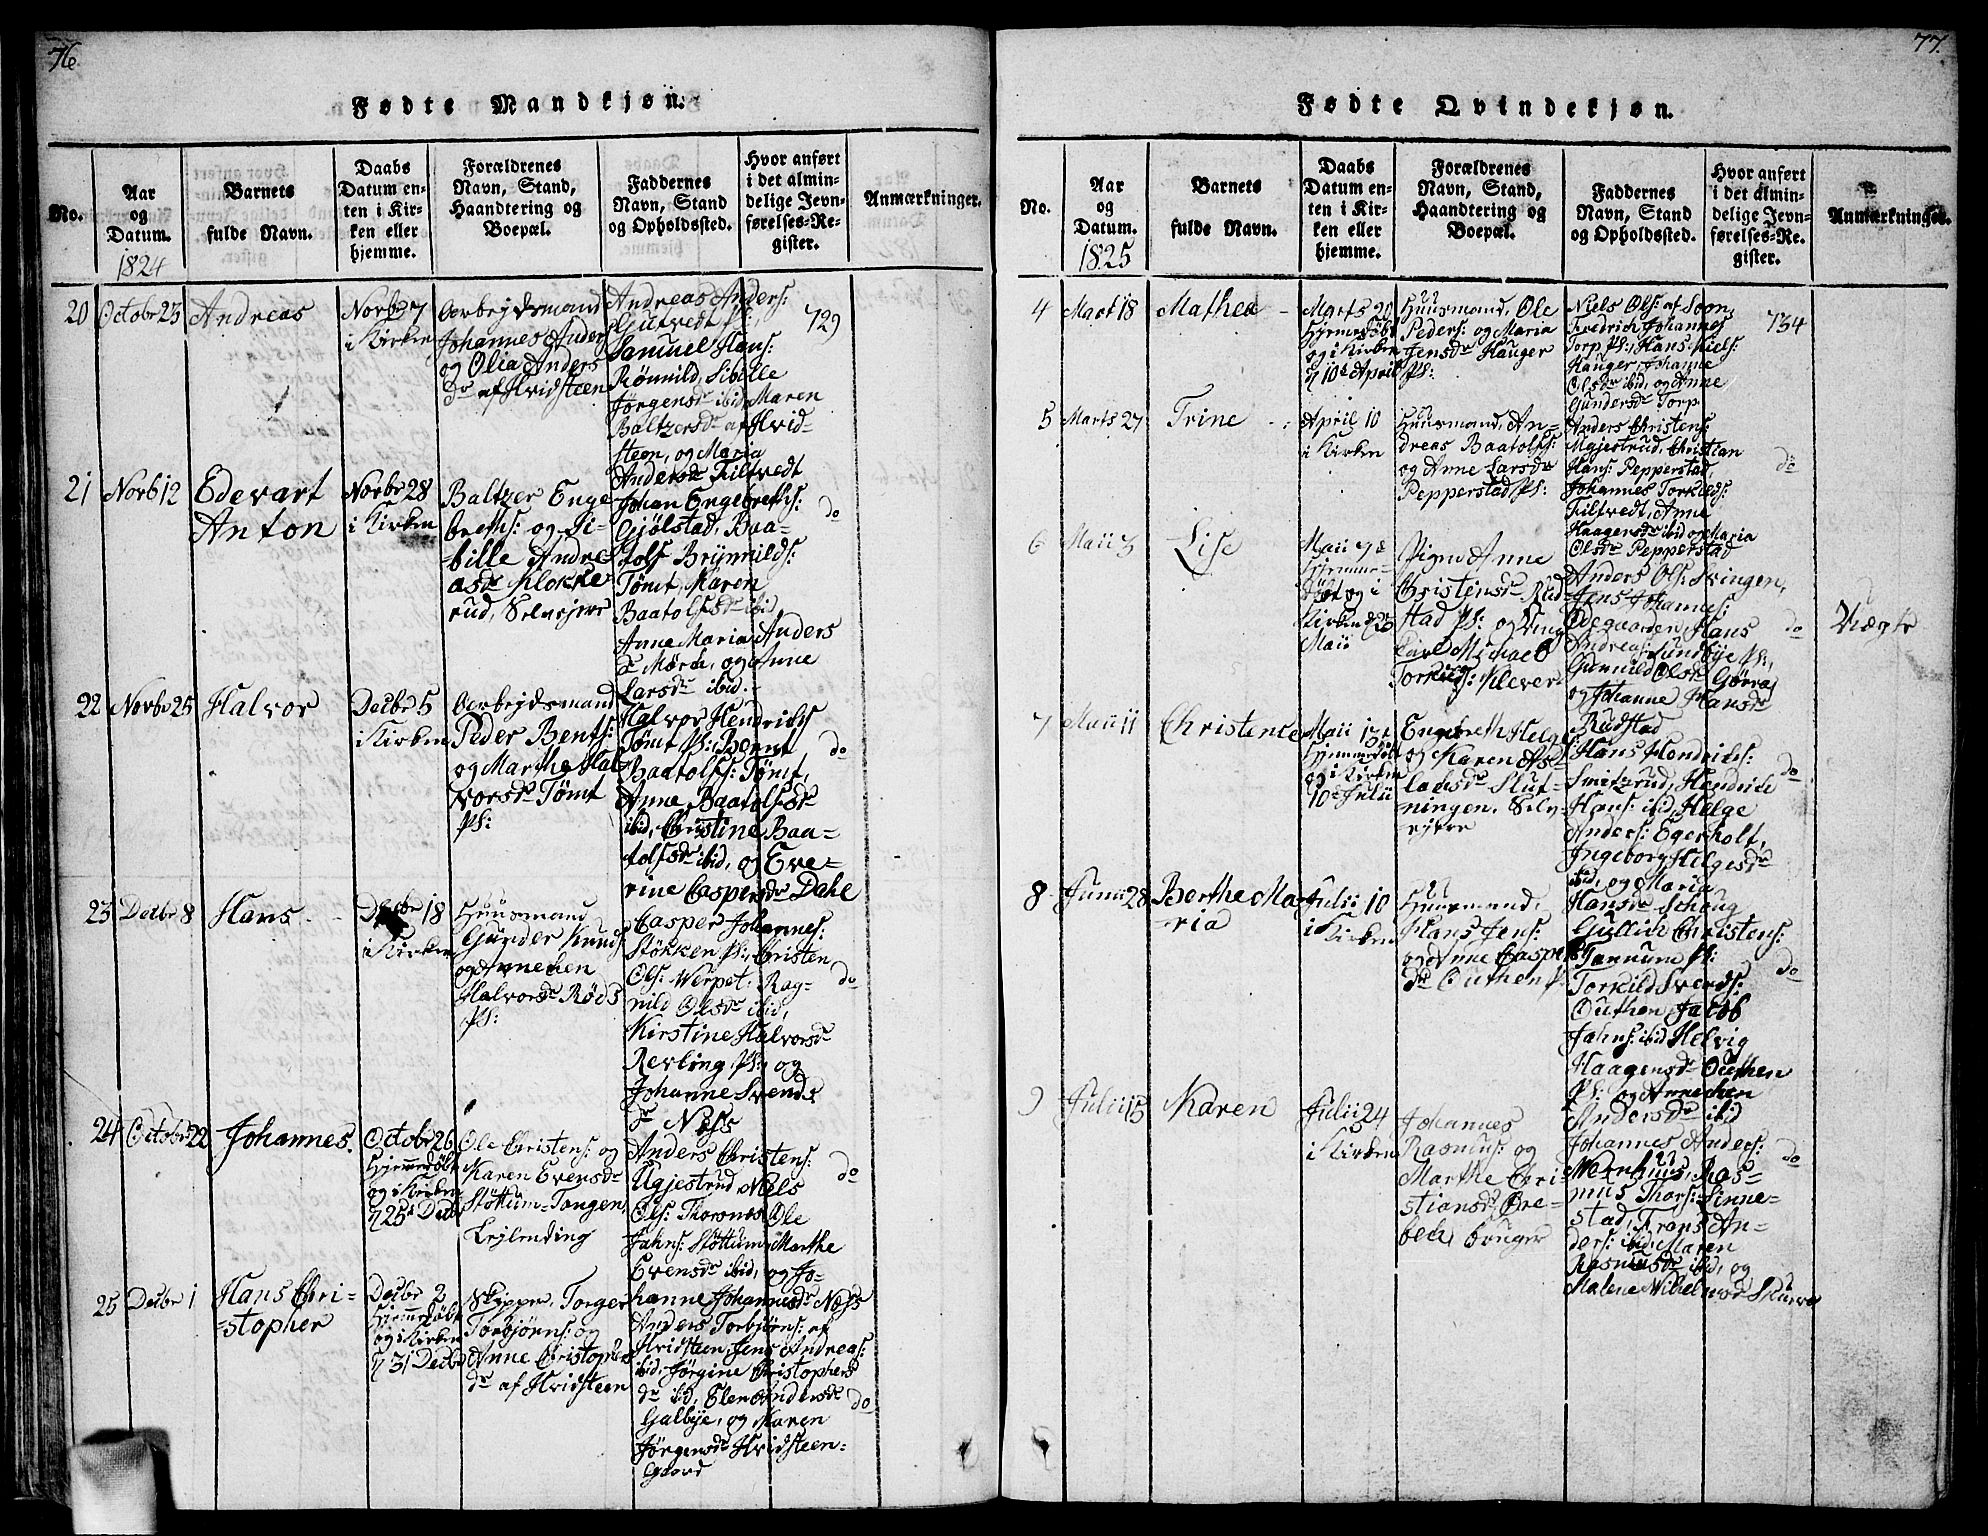 76.
Fødte Mandkjøn.
No.
Aar
og
Datum.
1824
Barnets
fulde Navn.
Daabs
Datum en-
ten i Kir-
ken eller
hjemme.
Forældrenes
Navn, Stand,
Haandtering og
Boepæl.
Faddernes
Navn, Stand
og Opholdssted.
Hvor anført
i det almin-
delige Jevn-
førelses-Re-
gister.
Anmærkninger.
20
Octobr 23
Andreas
Novbr 7
i Kirken
Arbejdsmand
Johannes Anders
og Olia Anders
dr af Hvidsteen
Andreas Anders:
Gjutvedt Ps:,
Samuel Hans:
Rønnild, Sibille
Jørgensdr ibid, Maren
Baltzersdr af Hvid-
steen, og Maria
Andersdr Filtvedt
729
21
Novb 12
Edevart
Anton
Novbr 28
i Kirken
Baltzer Enge
breths: og Si-
bille Andre
asdr Klokke
rud, Selvejere
Johan Engebreths:
Gjølstad, Baa-
tolf Brynnilds:
Tømt, Maren
Baatolfsdr ibid
Anne Maria Anders
dr Mørch, og Anne
Larsdr ibid.
do
22
Novbr 25
Halvor
Decbr 5
i Kirken
Arbejdsmand
Peder Bents:
og Marthe Hal
vorsdr Tømt
Ps:
Halvor Hendrichs
Tømt Ps:, Bernt
Baatolfs: Tømt,
Anne Baatolfsdr
ibid, Christine Baa-
tolfsdr ibid, og Eve-
rine Caspersdr Dahl
do
23
Decbr 8
Hans
Decbr 18
i Kirken
Huusmand
Gunder Knuds
og Annechen
Halvorsdr Rød
Ps:
Casper Johannes:
Støkken Ps:, Christen
Ols: Werpet, Rag-
nild Olsdr ibid,
Kirstine Halvorsdr
Revling Ps:, og
Johanne Svends
dr Næss
do
24
Octobr 22
Johannes.
Octobr 26
Hjemmedøbt
og i Kirken
d 25d Decbr
Ole Christens: og
Karen Evensdr
Støttum-Tangen
Lejlending
Anders Christens:
Ugjestrud, Niels
Ols: Thoronæs, Ole
Jahns: Støttum, Marthe
Evensdr ibid, og Jo-
hanne Johannesdr Næss
do
25
Decbr 1
Hans Chri-
stopher
Decbr 2
Hjemmedøbt
og i Kirken
d 31 Decbr
Skipper Torger
Torbjørns: og
Anne Christophers
dr af Hvidsteen
Anders Torbjørns: af
Hvidsteen, Jens Andreas:
ibid, Jørgine Christophers
dr ibid, Elen Andersdr
Galbye, og Karen
Jørgensdr Hvidsteen-
Gaard
do
77.
Fødte Qvindekjøn.
No.
Aar
og
Datum.
1825
Barnets
fulde Navn.
Daabs
Datum en-
ten i Kir-
ken eller
hjemme.
Forældrenes
Navn, Stand,
Haandtering og
Boepæl.
Faddernes
Navn, Stand
og Opholdssted.
Hvor anført
i det almin-
delige Jevn-
førelses-Re-
gister.
Anmærkninger.
4
Mart 18
Mathea
Marts 20
Hjemedøbt
og i Kirken
d 10d April
Huusmand, Ole
Peders: og Maria
Jensdr Hauger
Ps:
Niels Ols: af Soon,
Fredrich Johannes
Torp Ps:, Hans Niels:
Hauger, Johanne
Olsdr ibid, og Anne
Gundersdr Torp
734
5
Marts 27
Trine
April 10
i Kirken
Huusmand, An-
dreas Baatolfs:
og Anne Larsdr
Pepperstad Ps:
Anders Christens:
Ugjestrud, Christian
Hans: Pepperstad
Johannes Torkilds:
Filtvedt, Anne
Haagensdr ibid og Maria
Olsdr Pepperstad
do
6
Maii 3
Lise
Maii 7d
Hjemme-
døbt og i
Kirken d 23
Maii
Pigen Anne
Christensdr Rud
stad Ps: og Ung
Carl Michael
Torkils: Klever
Anders Ols: Svingen,
Jens Johannes:
Ødegaarden, Hans
Andreas: Lundbye Ps:,
Gunnild Olsdr Gørva
og Johanne Hansdr
Rudstad
do
Uægte
7
Maii 11
Christence
Maii 13d
Hjemmedøbt
og i Kirken
10d Julii
Engebreth Helge
og Karen As-
lachsdr Slut-
ningen, Selv-
ejere
Hans Hendrichs:
Smitzrud, Hendrich
Hans: ibid, Helge
Anders: Egerholt,
Ingeborg Helgesdr
ibid, og Maria
Hansdr Schaug
do
8
Junii 28
Berthe Ma
ria
Julii 10
i Kirken
Huusmand,
Hans Jens:
og Anne Caspers
dr Outhen Ps:
Gullich Christens:
Tannum Ps:
Torkild Svends:
Outhen, Jacob
Jahns: ibid, Helvig
Haagensdr Outhen
Ps: og Annechen
Andersdr ibid
do
9
Julii 15
Karen
Julii 24
i Kirken
Johannes
Rasmus: og
Marthe Chri-
stiansdr Bre-
bech, bruger
Johannes Anders:
Wernhuus, Ras-
mus Thors: Linne-
stad, Frans An-
ders: ibid, Maren
Rasmusdr ibid, og
do